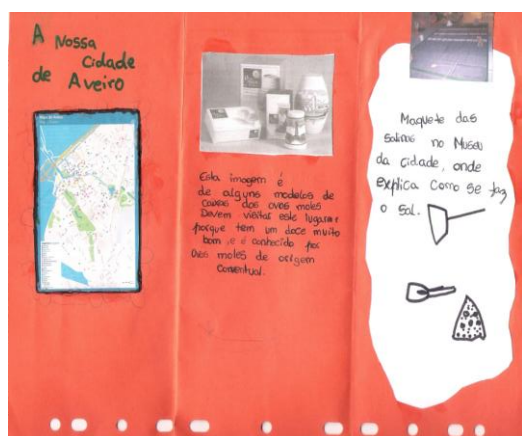 A Nossa
Cidade
de Aveiro
Esta imagem é
de alguns modelos de
caixas dos ovos moles
Devem visitar este lugar
porque tem um doce muito
bom, e é conhecido por
Ovos moles de origem
Conventual.
Maquete das
salinas no Museu
da cidade, onde
explica como se faz
o sal.